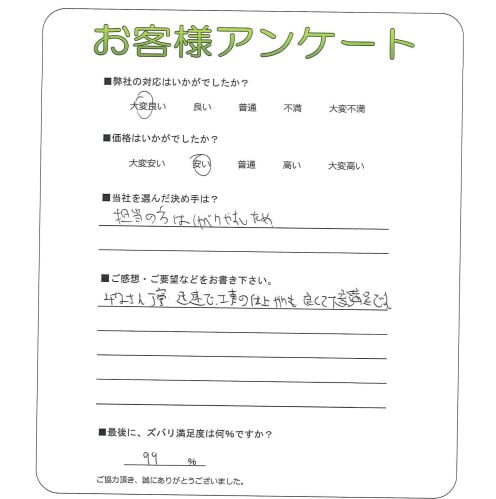 お客様アンケート
■弊社の対応はいかがでしたか？
大変良い 良い 普通 不満 大変不満
■価格はいかがでしたか？
大変安い 安い 普通 高い 大変高い
■当社を選んだ決め手は？
担当の方は ため
■ご感想・ご要望などをお書き下さい。
みなさん丁寧 迅速で、工事の仕上がりも良くて大変満足です。
■最後に、ズバリ満足度は何%ですか？
99 %
ご協力頂き、誠にありがとうございました。